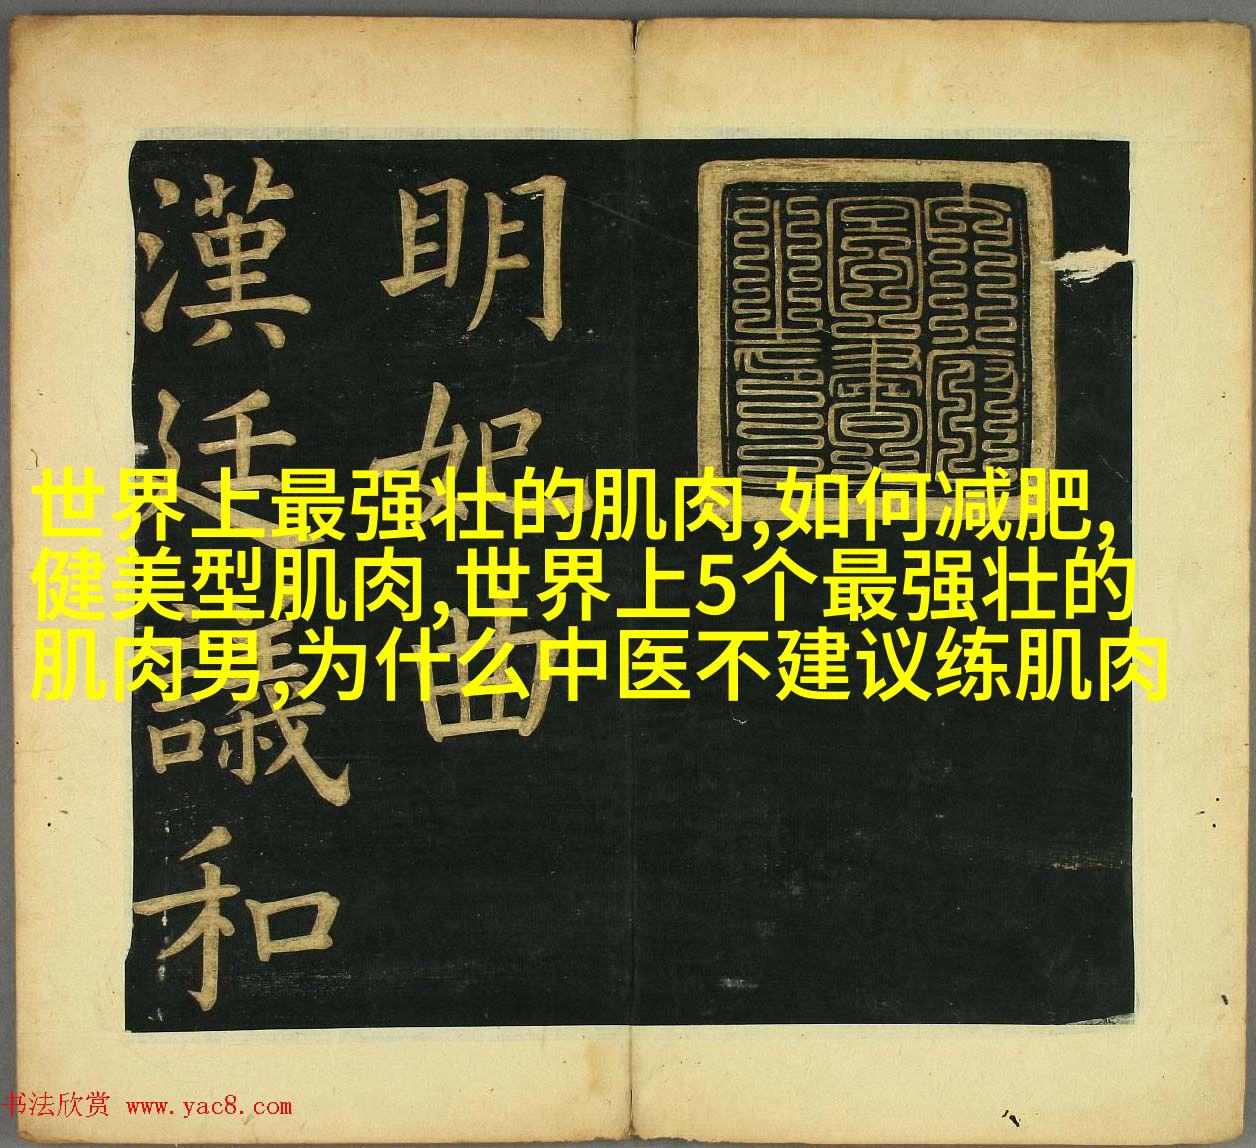 明妃曲
漢廷議和
世界上最强壮的肌肉,如何减肥,
健美型肌肉,世界上5个最强壮的
肌肉男,为什么中医不建议练肌肉
书法欣赏 www.yac8.com